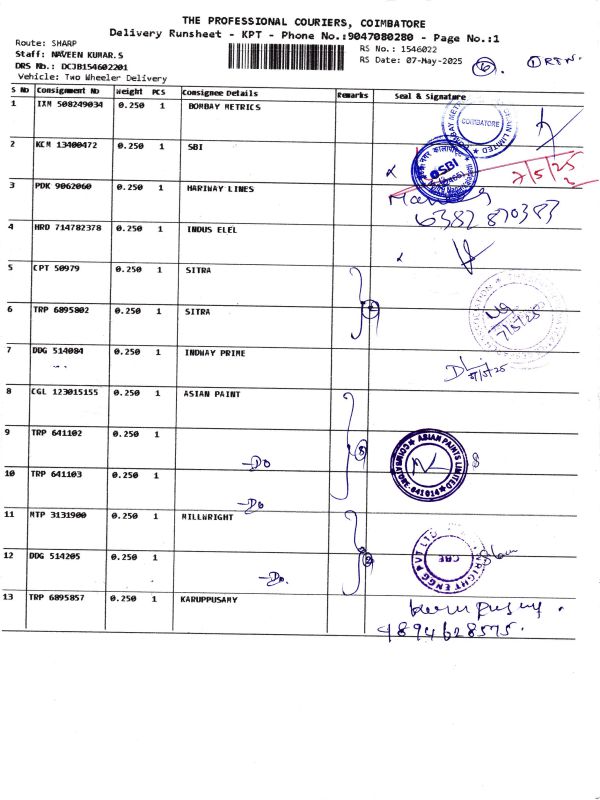 THE PROFESSIONAL COURIERS, COIMBATORE
Delivery Runsheet - KPT - Phone No.:9047080280 - Page No.:1
Route: SHARP
RS No.: 1546022
Staff: NAVEEN KUMAR.S
RS Date: 07-May-2025
DRS No.: DCJB154602201
Vehicle: Two Wheeler Delivery
S No Consignment No Weight PCS Consignee Details Remarks Seal & Signature
1 IXM 508249034 0.250 1 BOMBAY METRICS
COIMBATORE
2 KCM 13400472 0.250 1 SBI
SBI
7/5/25
3 PDK 9062060 0.250 1 HARIWAY LINES
6382 870383
4 HRD 714782378 0.250 1 INDUS ELEL
5 CPT 50979 0.250 1 SITRA
6 TRP 6895802 0.250 1 SITRA
7/5/25
7 DDG 514084 0.250 1 INDWAY PRIME
8 CGL 123015155 0.250 1 ASIAN PAINT
9 TRP 641102 0.250 1 -Do
ASIAN PAINTS LIMITED
COIMBATORE-641014
10 TRP 641103 0.250 1 -Do
11 MTP 3131900 0.250 1 MILLWRIGHT
12 DDG 514205 0.250 1 -Do.
CBE
13 TRP 6895857 0.250 1 KARUPPUSAMY
9894628575.